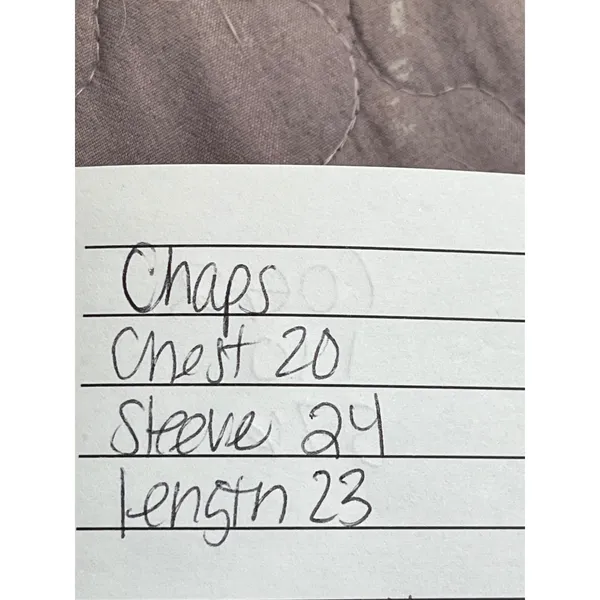 Chaps
Chest 20
Sleeve 24
Length 23